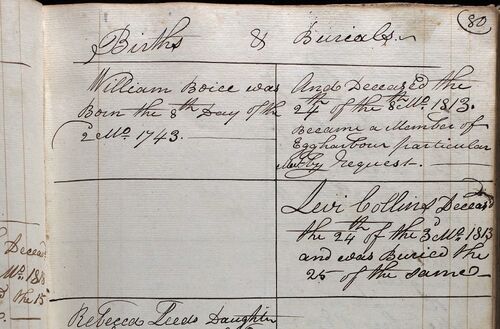 80
Births & Burials.
William Boice was
Born the 8th Day of the
2d Mo. 1743.
And Deceased the
24th of the 8th Mo. 1813.
became a Member of
Eggharbour particular
Meetg by request.
Levi Collins Deceasd
the 24th of the 3d Mo. 1813
and was Buried the
25 of the same
Deceas
Mo. 181
the 15
Rebecca Leeds Daughter